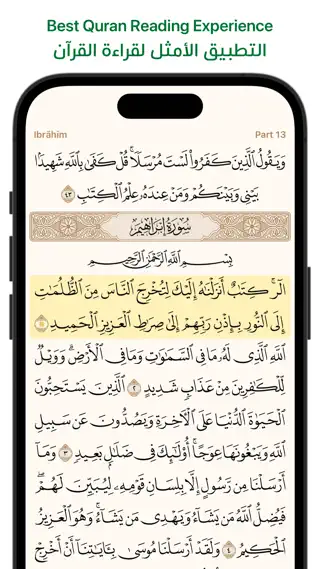 Best Quran Reading Experience
التطبيق الأمثل لقراءة القرآن
Ibrāhīm Part 13
وَيَقُولُ ٱلَّذِينَ كَفَرُوا۟ لَسْتَ مُرْسَلًا ۚ قُلْ كَفَىٰ بِٱللَّهِ شَهِيدًۢا
بَيْنِى وَبَيْنَكُمْ وَمَنْ عِندَهُۥ عِلْمُ ٱلْكِتَـٰبِ ٤٣
سُورَةُ إِبْرَاهِيمَ
بِسْمِ ٱللَّهِ ٱلرَّحْمَـٰنِ ٱلرَّحِيمِ
الٓر ۚ كِتَـٰبٌ أَنزَلْنَـٰهُ إِلَيْكَ لِتُخْرِجَ ٱلنَّاسَ مِنَ ٱلظُّلُمَـٰتِ
إِلَى ٱلنُّورِ بِإِذْنِ رَبِّهِمْ إِلَىٰ صِرَٰطِ ٱلْعَزِيزِ ٱلْحَمِيدِ ١
ٱللَّهِ ٱلَّذِى لَهُۥ مَا فِى ٱلسَّمَـٰوَٰتِ وَمَا فِى ٱلْأَرْضِ ۗ وَوَيْلٌ
لِّلْكَـٰفِرِينَ مِنْ عَذَابٍ شَدِيدٍ ٢ ٱلَّذِينَ يَسْتَحِبُّونَ
ٱلْحَيَوٰةَ ٱلدُّنْيَا عَلَى ٱلْـَٔاخِرَةِ وَيَصُدُّونَ عَن سَبِيلِ
ٱللَّهِ وَيَبْغُونَهَا عِوَجًا ۚ أُو۟لَـٰٓئِكَ فِى ضَلَـٰلٍۭ بَعِيدٍ ٣ وَمَآ
أَرْسَلْنَا مِن رَّسُولٍ إِلَّا بِلِسَانِ قَوْمِهِۦ لِيُبَيِّنَ لَهُمْ ۖ
فَيُضِلُّ ٱللَّهُ مَن يَشَآءُ وَيَهْدِى مَن يَشَآءُ ۚ وَهُوَ ٱلْعَزِيزُ
ٱلْحَكِيمُ ٤ وَلَقَدْ أَرْسَلْنَا مُوسَىٰ بِـَٔايَـٰتِنَآ أَنْ أَخْرِجْ